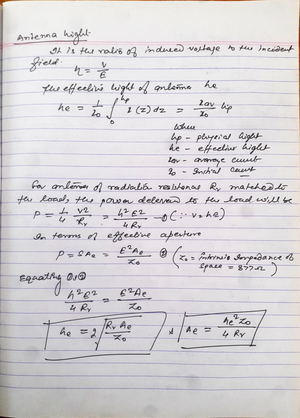 Antenna hight.
It is the ratio of induced voltage to the incident
field. η = V/E
The effective hight of antenna he
he = 1/I0 ∫0^hp I(z) dz = Iav/I0 hp
where
hp - physical hight
he - effective hight
Iav - average current
I0 - Initial current
For antenna of radiation resistance Rr matched to
the load, the power delivered to the load will be
P = 1/4 V²/Rr = h²E²/4Rr → ① (∵ v = hE)
In terms of effective aperture
P = SAe = E²Ae/Z0 ② (Z0 = intrinsic Impedance of
space = 377Ω)
Equating ①, ②
h²E²/4Rr = E²Ae/Z0
he = 2√(Rr Ae/Z0) & Ae = he²Z0/4Rr